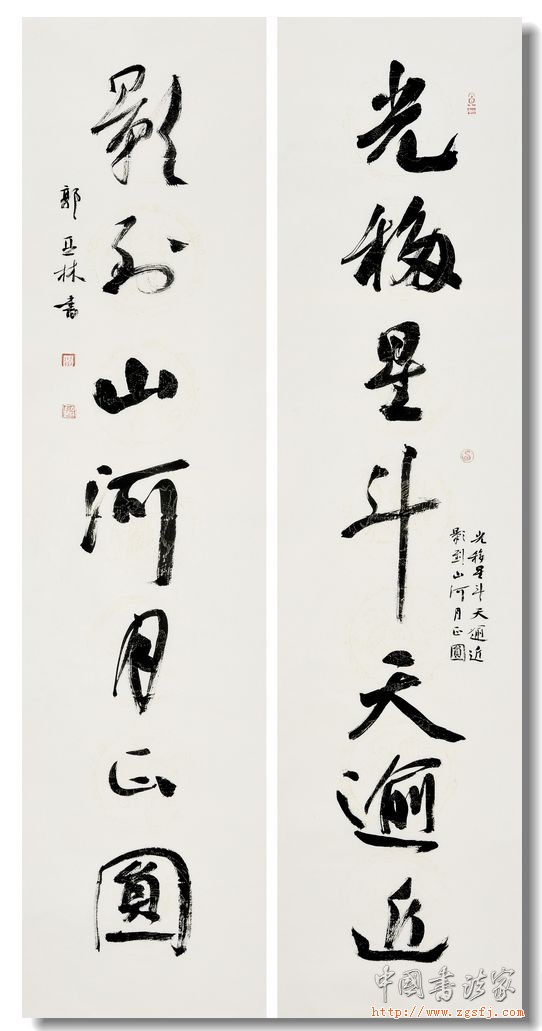 光移星斗天逾近
光移星斗天逾近
影到山河月正圓
影到山河月正圓
郭亚林書
中国书法家
http://www.zgsfj.com